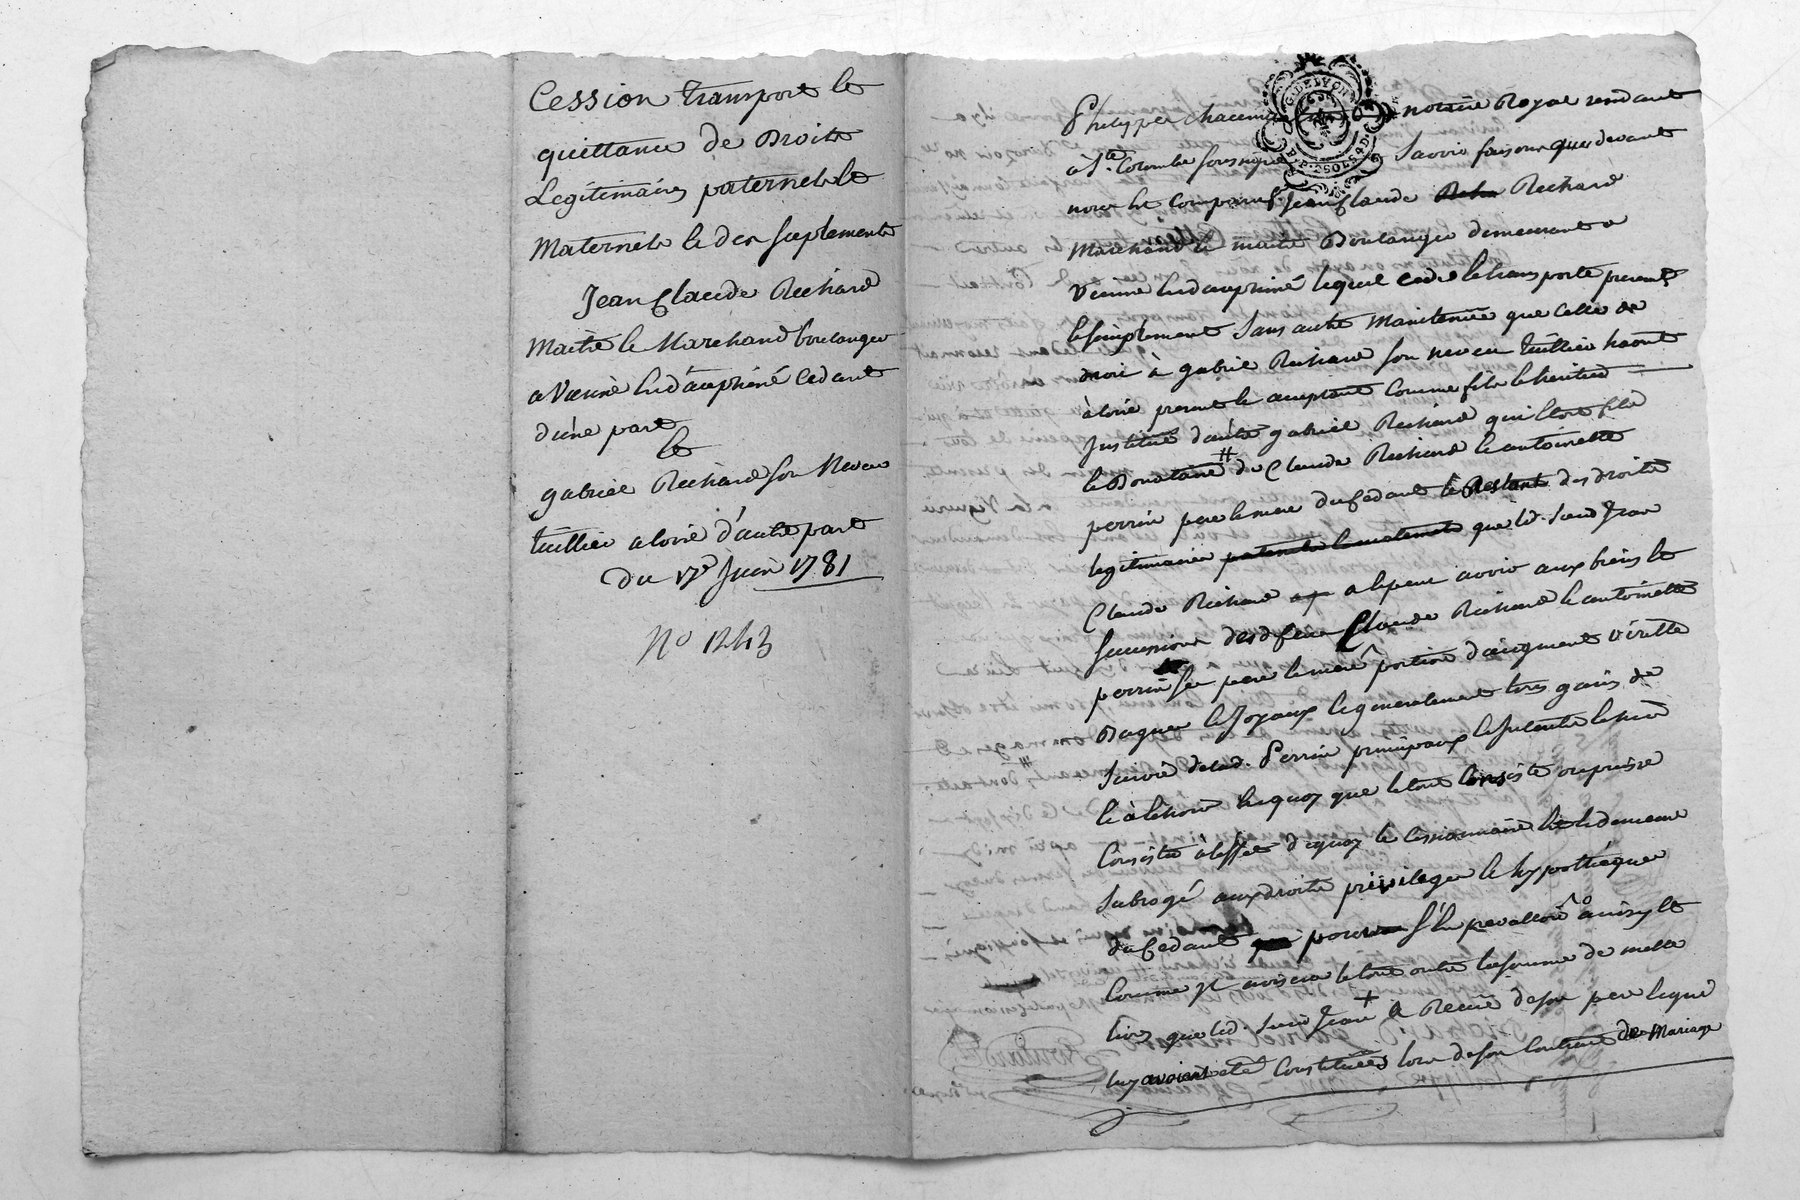 Cession transport et
quittance de Droits
Legitimaires paternels et
Maternels et des suplements
Jean Claude Richard
Maitre et Marchand boulanger
a Vienne en dauphiné Cedant
d'une part
et
gabriel Richard son Neveu
tuillier a loire d'autre part
du 17e Juin 1781
No 1243
G. DE LYON
notaire Royal residant
à Ste. Colombe soussigné savoir faisons que devant
nous est comparu Sr. Jean Claude Richard
Marchand et maitre Boulanger demeurant a
Vienne en dauphiné lequel cede et transporte purement
et simplement sans autre maintenue que celle de
droit à gabriel Richard son neveu tuillier
à loire present et acceptant comme fils et heritier
Institué d'autre gabriel Richard qui etoit fils
et Donataire de Claude Richard et antoinette
perrin pere et mere du Cedant le Restant des droits
legitimaires paternels et maternels que led. Sieur Jean
Claude Richard a et peut avoir aux biens et
successions desd feux Claude Richard et antoinette
perrin ses pere et mere portion d'augment virille
Bagues et Joyaux et generalement tous gains de
survie de lad. Perrin principaux
et à echoir en quoy que le tout consiste ou puisse
Consister à l'effet de quoy le cessionnaire est et demeure
subrogé aux droits privileges et hypotheques
du Cedant pour s'en prevalloir ainsy et
Comme il avisera le tout outre la somme de mille
livres que led. Sieur Jean a Recue de son pere
luy avoient eté Constituées lors de son Contrat de Mariage